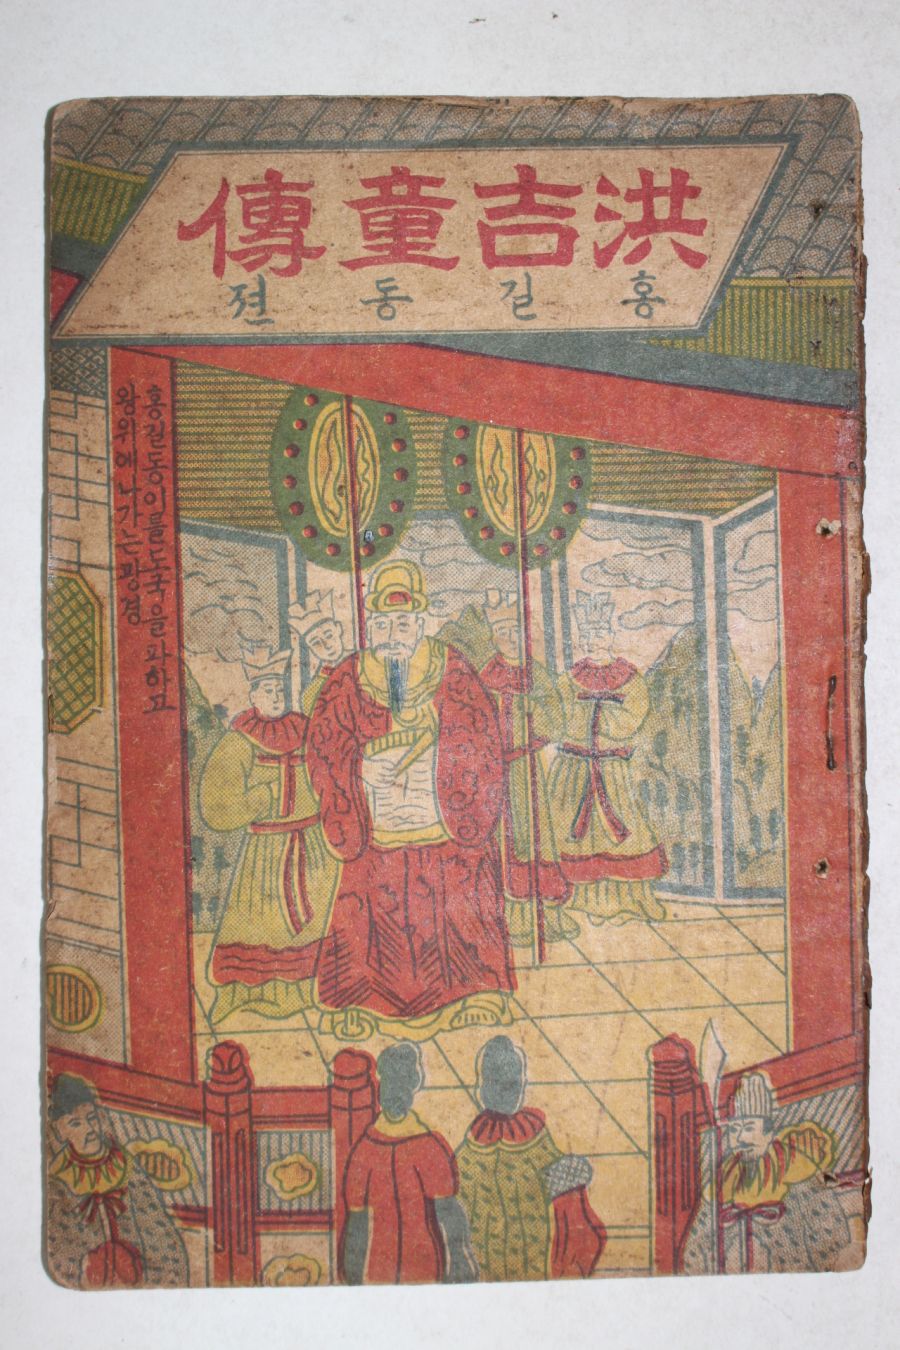 洪吉童傳
홍길동젼
홍길동이률도국을파하고
왕위에나가는광경